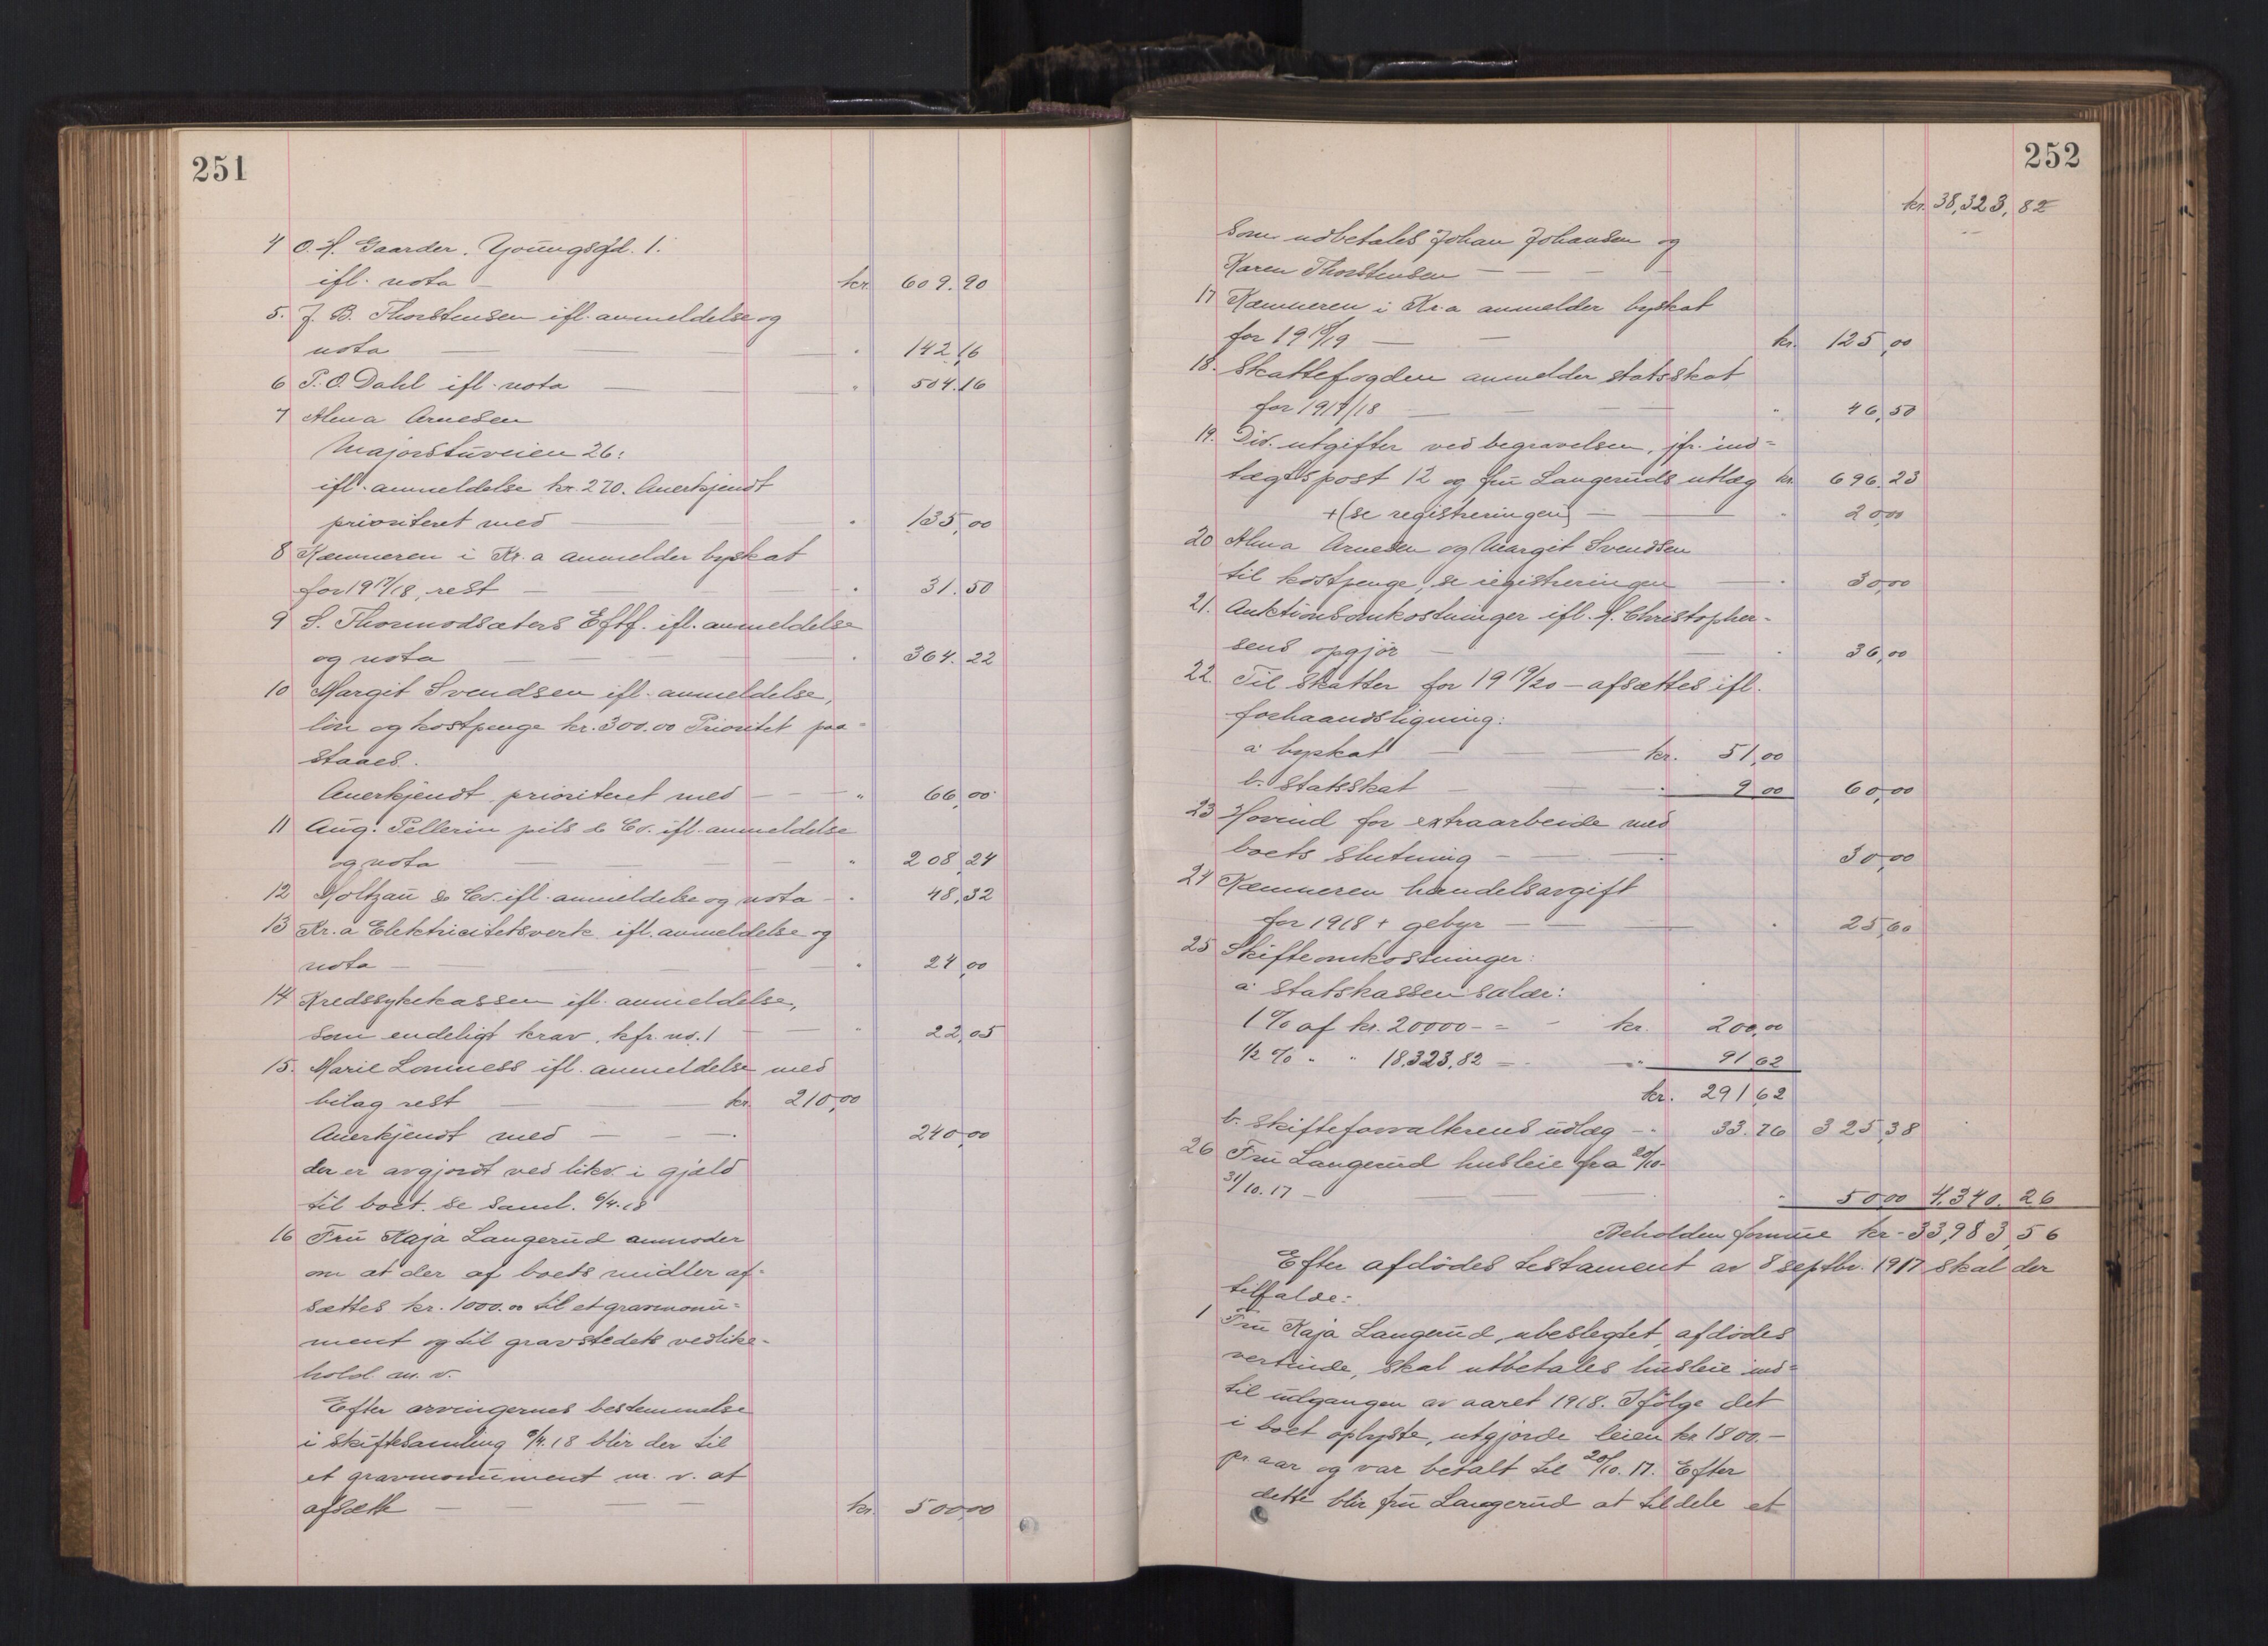 251
4 O. H. Gaarder. Youngsgd. 1.
ifl. nota — kr. 609.90
5. J. B. Thorstensen ifl. anmeldelse og
nota — — — " 142,16
6 P. O. Dahl ifl. nota — — " 504.16
7 Alma Arnesen
Majorstuveien 26:
ifl. anmeldelse kr. 270. Anerkjendt
prioriteret med — — " 135,00
8 Kæmneren i Kr.a anmelder byskat
for 1917/18, rest — — — " 31.50
9 S. Thormodsæters Eftf. ifl. anmeldelse
og nota — — — — " 364.22
10 Margit Svendsen ifl. anmeldelse,
lön og kostpenge kr. 300.00 Prioritet paa=
staaes.
Anerkjendt prioriteret med — — — " 66,00
11 Aug. Pellerin fils & Co. ifl. anmeldelse
og nota — — — — " 208,24
12 Holtzau & Co. ifl. anmeldelse og nota — " 48,32
13 Kr.a Elektricitetsverk ifl. anmeldelse og
nota — — — — — " 24,00
14 Kredssykekassen ifl. anmeldelse,
som endeligt krav, kfr. no. 1 — — " 22,05
15. Marie Lonness ifl. anmeldelse med
bilag rest — — kr. 210,00
Anerkjendt med — — — 240,00
der er avgjordt ved likv. i gjæld
til boet. se saml. 6/4.18
16 Fru Kaja Langerud anmoder
om at der af boets midler af=
sættes kr. 1000.00 til et gravmonu=
ment og til gravstedets vedlike=
hold m. v.
Efter arvingernes bestemmelse
i skiftesamling 6/4.18 blir der til
et gravmonument m. v. at
afsætte — — — — kr. 500,00
252
kr. 38,323,82
som udbetales Johan Johansen og
Karen Thorstensen — — — —
17 Kæmneren i Kr.a anmelder byskat
for 1918/19 — — kr. 125,00
18. Skattefogden anmelder statsskat
for 1917/18 — — — — " 46,50
19. Div. utgifter ved begravelsen, jfr. ind=
tægtspost 12 og fru Langeruds utlæg kr. 696.23
+ (se registreringen) — — " 20,00
20 Alma Arnesen og Margit Svendsen
til kostpenge, se registreringen — " 30,00
21. Auktionsomkostninger ifl. H. Christopher=
sens opgjör — — " 36,00
22. Til skatter for 1919/20 — afsættes ifl.
forhaandsligning:
a. byskat — — kr. 51,00
b. statsskat — — " 9,00 60,00
23 Hovind for extraarbeide med
boets slutning — — " 30,00
24 Kæmneren handelsavgift
for 1918 + gebyr — — — " 25,60
25 Skifteomkostninger:
a. statskassen salær:
1% af kr. 20000 - = - kr. 200,00
1/2 % " " 18,323,82 = - " 91,62
kr. 291,62
b. skifteforvalterens udlæg - " 33.76 325,38
26 Fru Langerud husleie fra 20/10-
31/10.17 — — — — " 50,00 4,340.26
Beholden formue kr - 33,983,56
Efter afdödes testament av 8 septbr. 1917 skal der
tilfalde:
1 Fru Kaja Langerud, ubeslegtet, afdödes
vertinde, skal utbetales husleie ind=
til udgangen av aaret 1918. Ifölge det
i boet oplyste, utgjorde leien kr. 1800.—
pr. aar og var betalt til 20/10.17. Efter
dette blir fru Langerud at tildele et